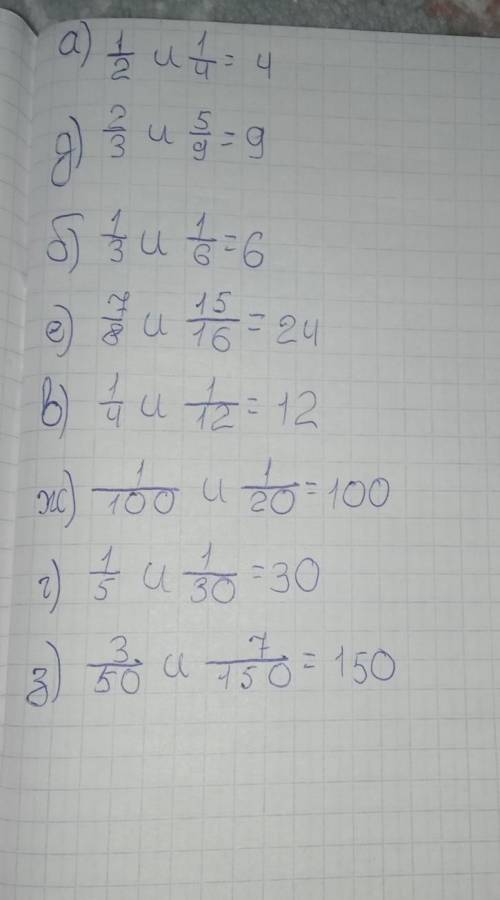 а) 1/2 и 1/4 = 4
д) 2/3 и 5/9 = 9
б) 1/3 и 1/6 = 6
е) 7/8 и 15/16 = 24
в) 1/4 и 1/12 = 12
ж) 1/100 и 1/20 = 100
г) 1/5 и 1/30 = 30
з) 3/50 и 7/150 = 150